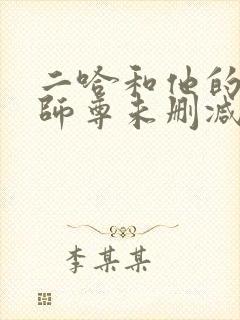 二哈和他的
师尊未删减
李某某